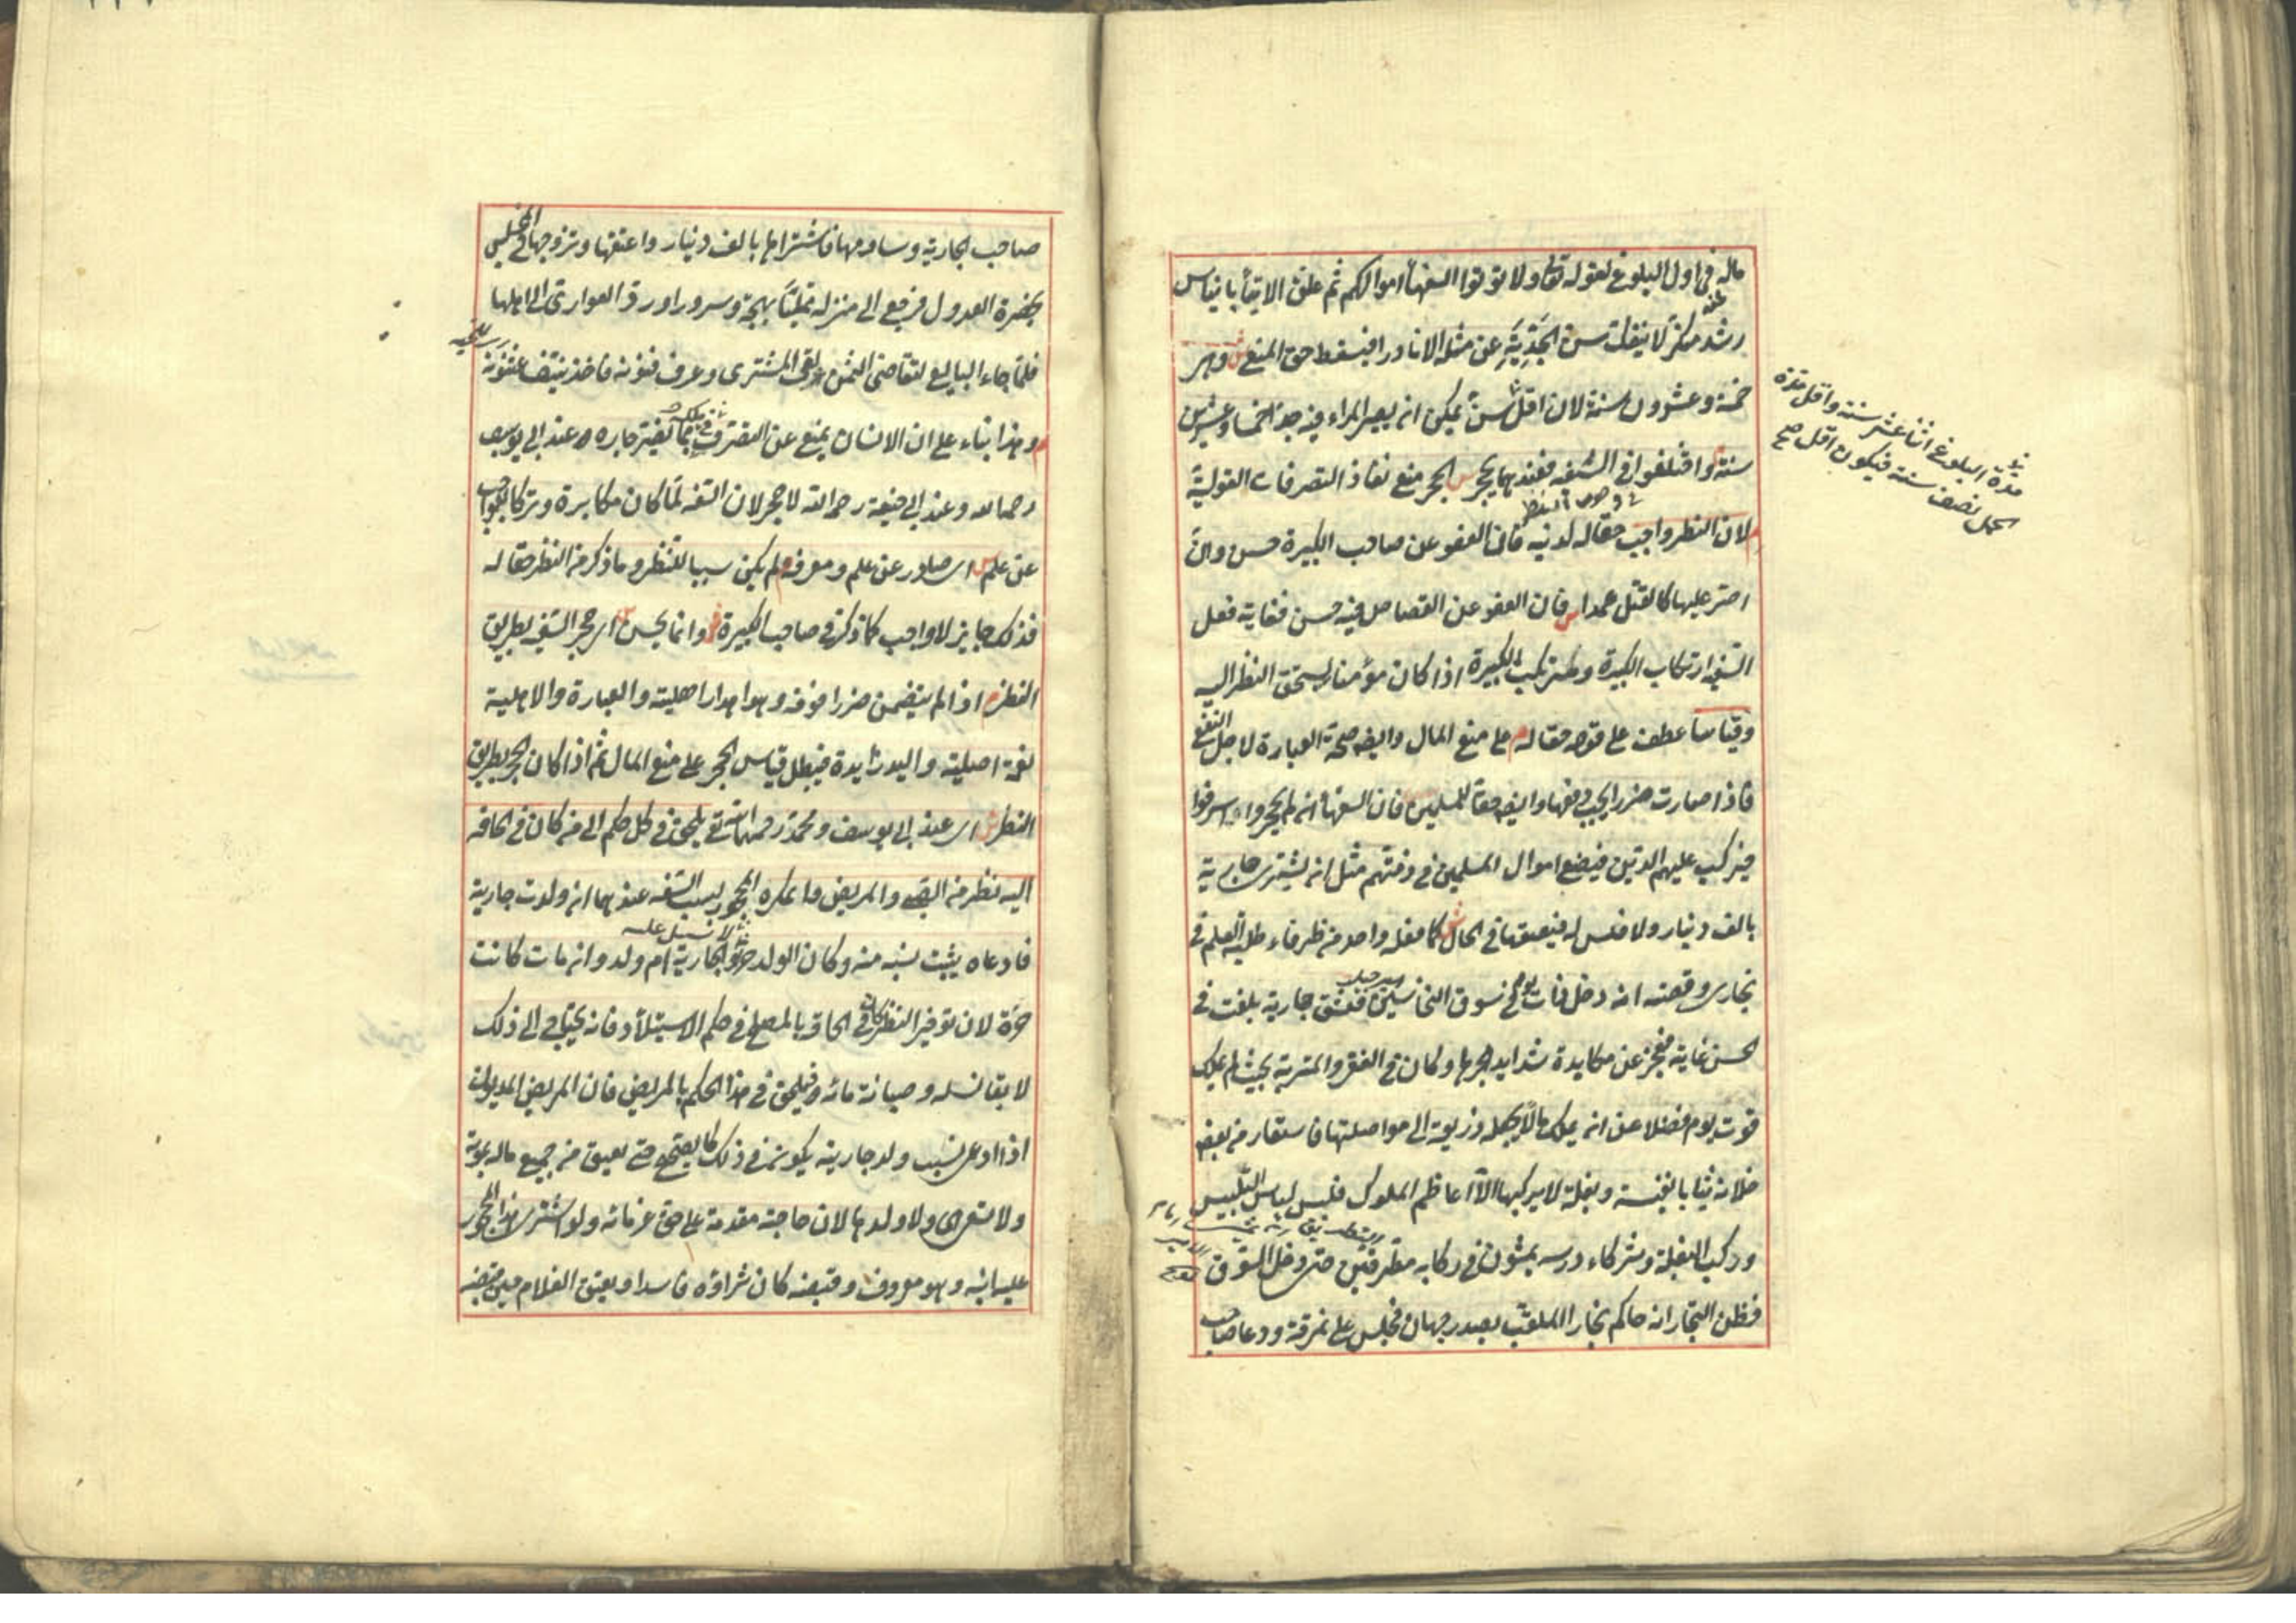 ماله في اول البلوغ لقوله تعالى ولا تؤتوا السفهاء اموالكم ثم علق الايتاء بايناس
رشد منكر لا ينفك سن الجدية عن مثله الا نادرا فيسقط حق المنع ش وهو
خمسة وعشرون سنة لان اقل سن يمكن ان يصير المرء فيه جدا خمسا وعشرين
سنة م واختلفوا في السفه فعندهما يحجر ش الحجر منع نفاذ التصرفات القولية
م لان النظر واجب حقا له لدينه فان العفو عن صاحب الكبيرة حسن وان
اصر عليها كالقتل عمدا ش فان العفو عن القصاص فيه حسن فغاية فعل
السفيه ارتكاب الكبيرة ومرتكب الكبيرة اذا كان مؤمنا يستحق النظر اليه
وقياسا عطف على قوله حقا له م على منع المال وايضا صحة العبارة لاجل النفع
فاذا صارت ضررا يجب دفعها وايضا حقا للمسلمين فان السفهاء ان لم يحجروا اسرفوا
فيركب عليهم الديون فيضيع اموال المسلمين في ذمتهم مثل ان يشتري جارية
بالف دينار ولا فلس له فيعتقها في الحال ش كما فعله واحد من ظرفاء طلبة العلم في
بخارى وقصته انه دخل ذات يوم في سوق النخاسين فعشق جارية بلغت في
الحسن غاية فعجز عن مكابدة شدايد هجرها وكان في الفقر والمتربة بحيث لم يملك
قوت يوم فضلا عن ان يملك مالا يجعله ذريعة الى مواصلتها فاستعار من بعض
خلانه ثيابا نفيسة وبغلة لا يركبها الا اعاظم الملوك فلبس لباس التلبيس
وركب البغلة وشركاء درسه يمشون في ركابه مطرقين حتى دخل السوق
فظن التجار انه حاكم بخارا الملقب بصدر جهان فجلس على نمرقة ودعا صاحب
مدة البلوغ اثنا عشر سنة واقل مدة
الحمل نصف سنة فيكون اقل صح
صاحب الجارية وساومها فاشتراها بالف دينار واعتقها وتزوجها في المجلس
بحضرة العدول فرجع الى منزله ممتلئا بهجة وسرورا ورد العواري الى اهلها
فلما جاء البايع لتقاضي الثمن لقي المشتري وعرف فنونه فاخذ ينتف عثنونه
م وهذا بناء على ان الانسان يمنع عن التصرف في ملكه بما يضر جاره عند ابي يوسف
رحمه الله وعند ابي حنيفة رحمه الله لا حجر لان السفه لما كان مكابرة وتركا للواجب
عن علم ش اي صادر عن علم ومعرفة م لم يكن سببا للنظر وما ذكر من النظر حقا له
فذلك جايز لا واجب كما ذكر في صاحب الكبيرة وانما يحسن ش اي حجر السفيه بطريق
النظر م اذا لم يتضمن ضررا فوقه وهو اهدار اهليته والعبارة والاهلية
نعمة اصلية واليد زايدة فيبطل قياس الحجر على منع المال ثم اذا كان الحجر بطريق
النظر ش اي عند ابي يوسف ومحمد رحمهما الله تع يلحق في كل حكم الى من كان في الحاقه
اليه نظر من الصبي والمريض والمكره المحجور بسبب السفه عندهما ان ولدت جارية
فادعاه يثبت نسبه منه وكان الولد حرا والجارية ام ولد وان مات كانت
حرة لان توفير النظر كان في الحاقه بالمصلح في حكم الاستيلاد فانه يحتاج الى ذلك
لابقاء نسله وصيانة مائه فيلحق في هذا الحكم بالمريض فان المريض المديون
اذا ادعى نسب ولد جاريته يكون في ذلك كالصحيح حتى يعتق من جميع ماله بموته
ولا تسعى هي ولا ولدها لان حاجته مقدمة على حق غرمائه ولو اشترى هذا المحجور
عليه ابنه وهو معروف وقبضه كان شراؤه فاسدا ويعتق الغلام حين قبضه